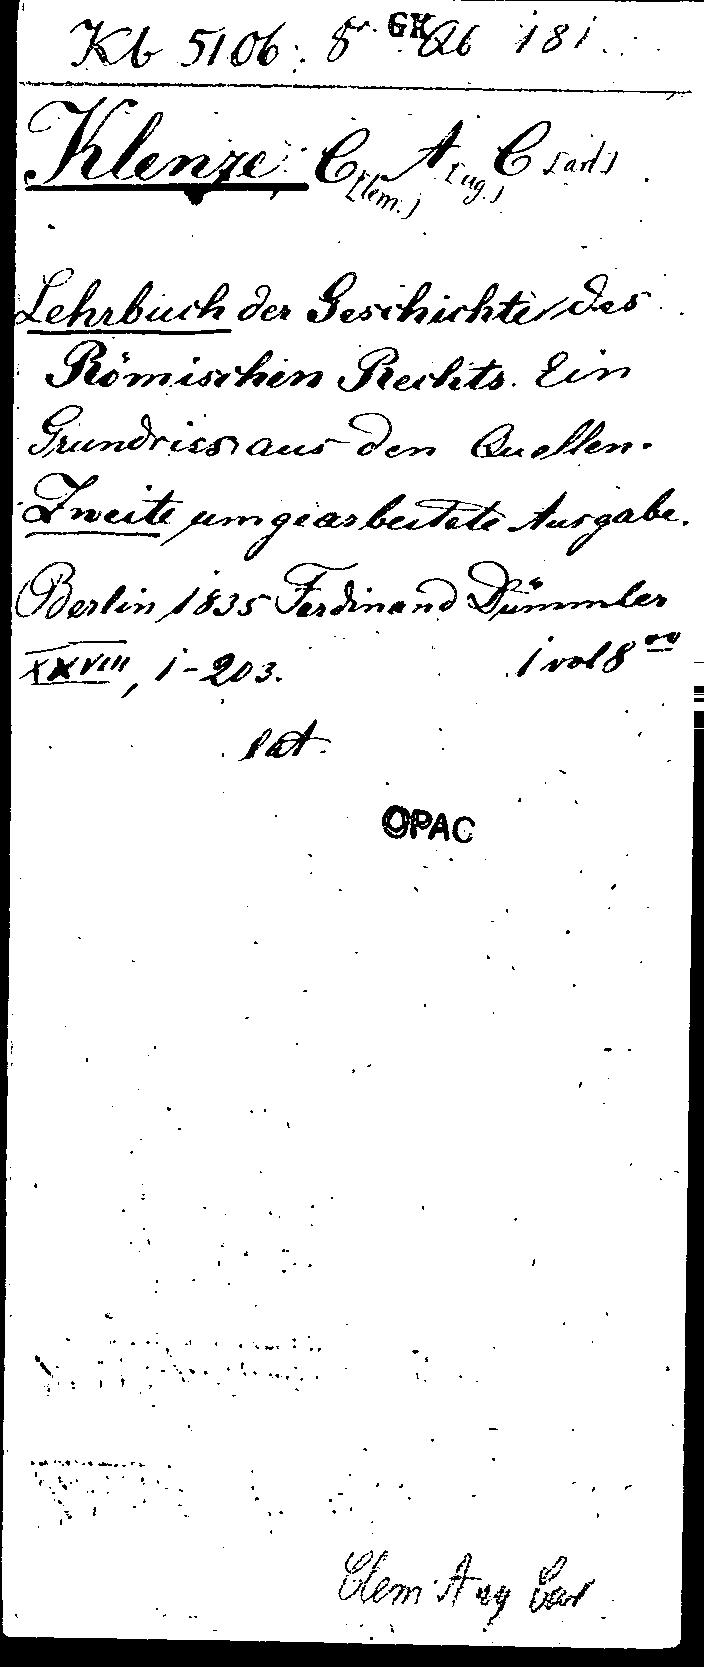 Kb 5106: 8° GK Qb 181
Klenze C[lem.] A[ug.] C[arl]
Lehrbuch der Geschichte des
Römischen Rechts. Ein
Grundriss aus den Quellen.
Zweite umgearbeitete Ausgabe.
Berlin 1835 Ferdinand Dümmler
XXVIII, 1-203. 1 vol 8vo
lat.
OPAC
Clem Aug Car